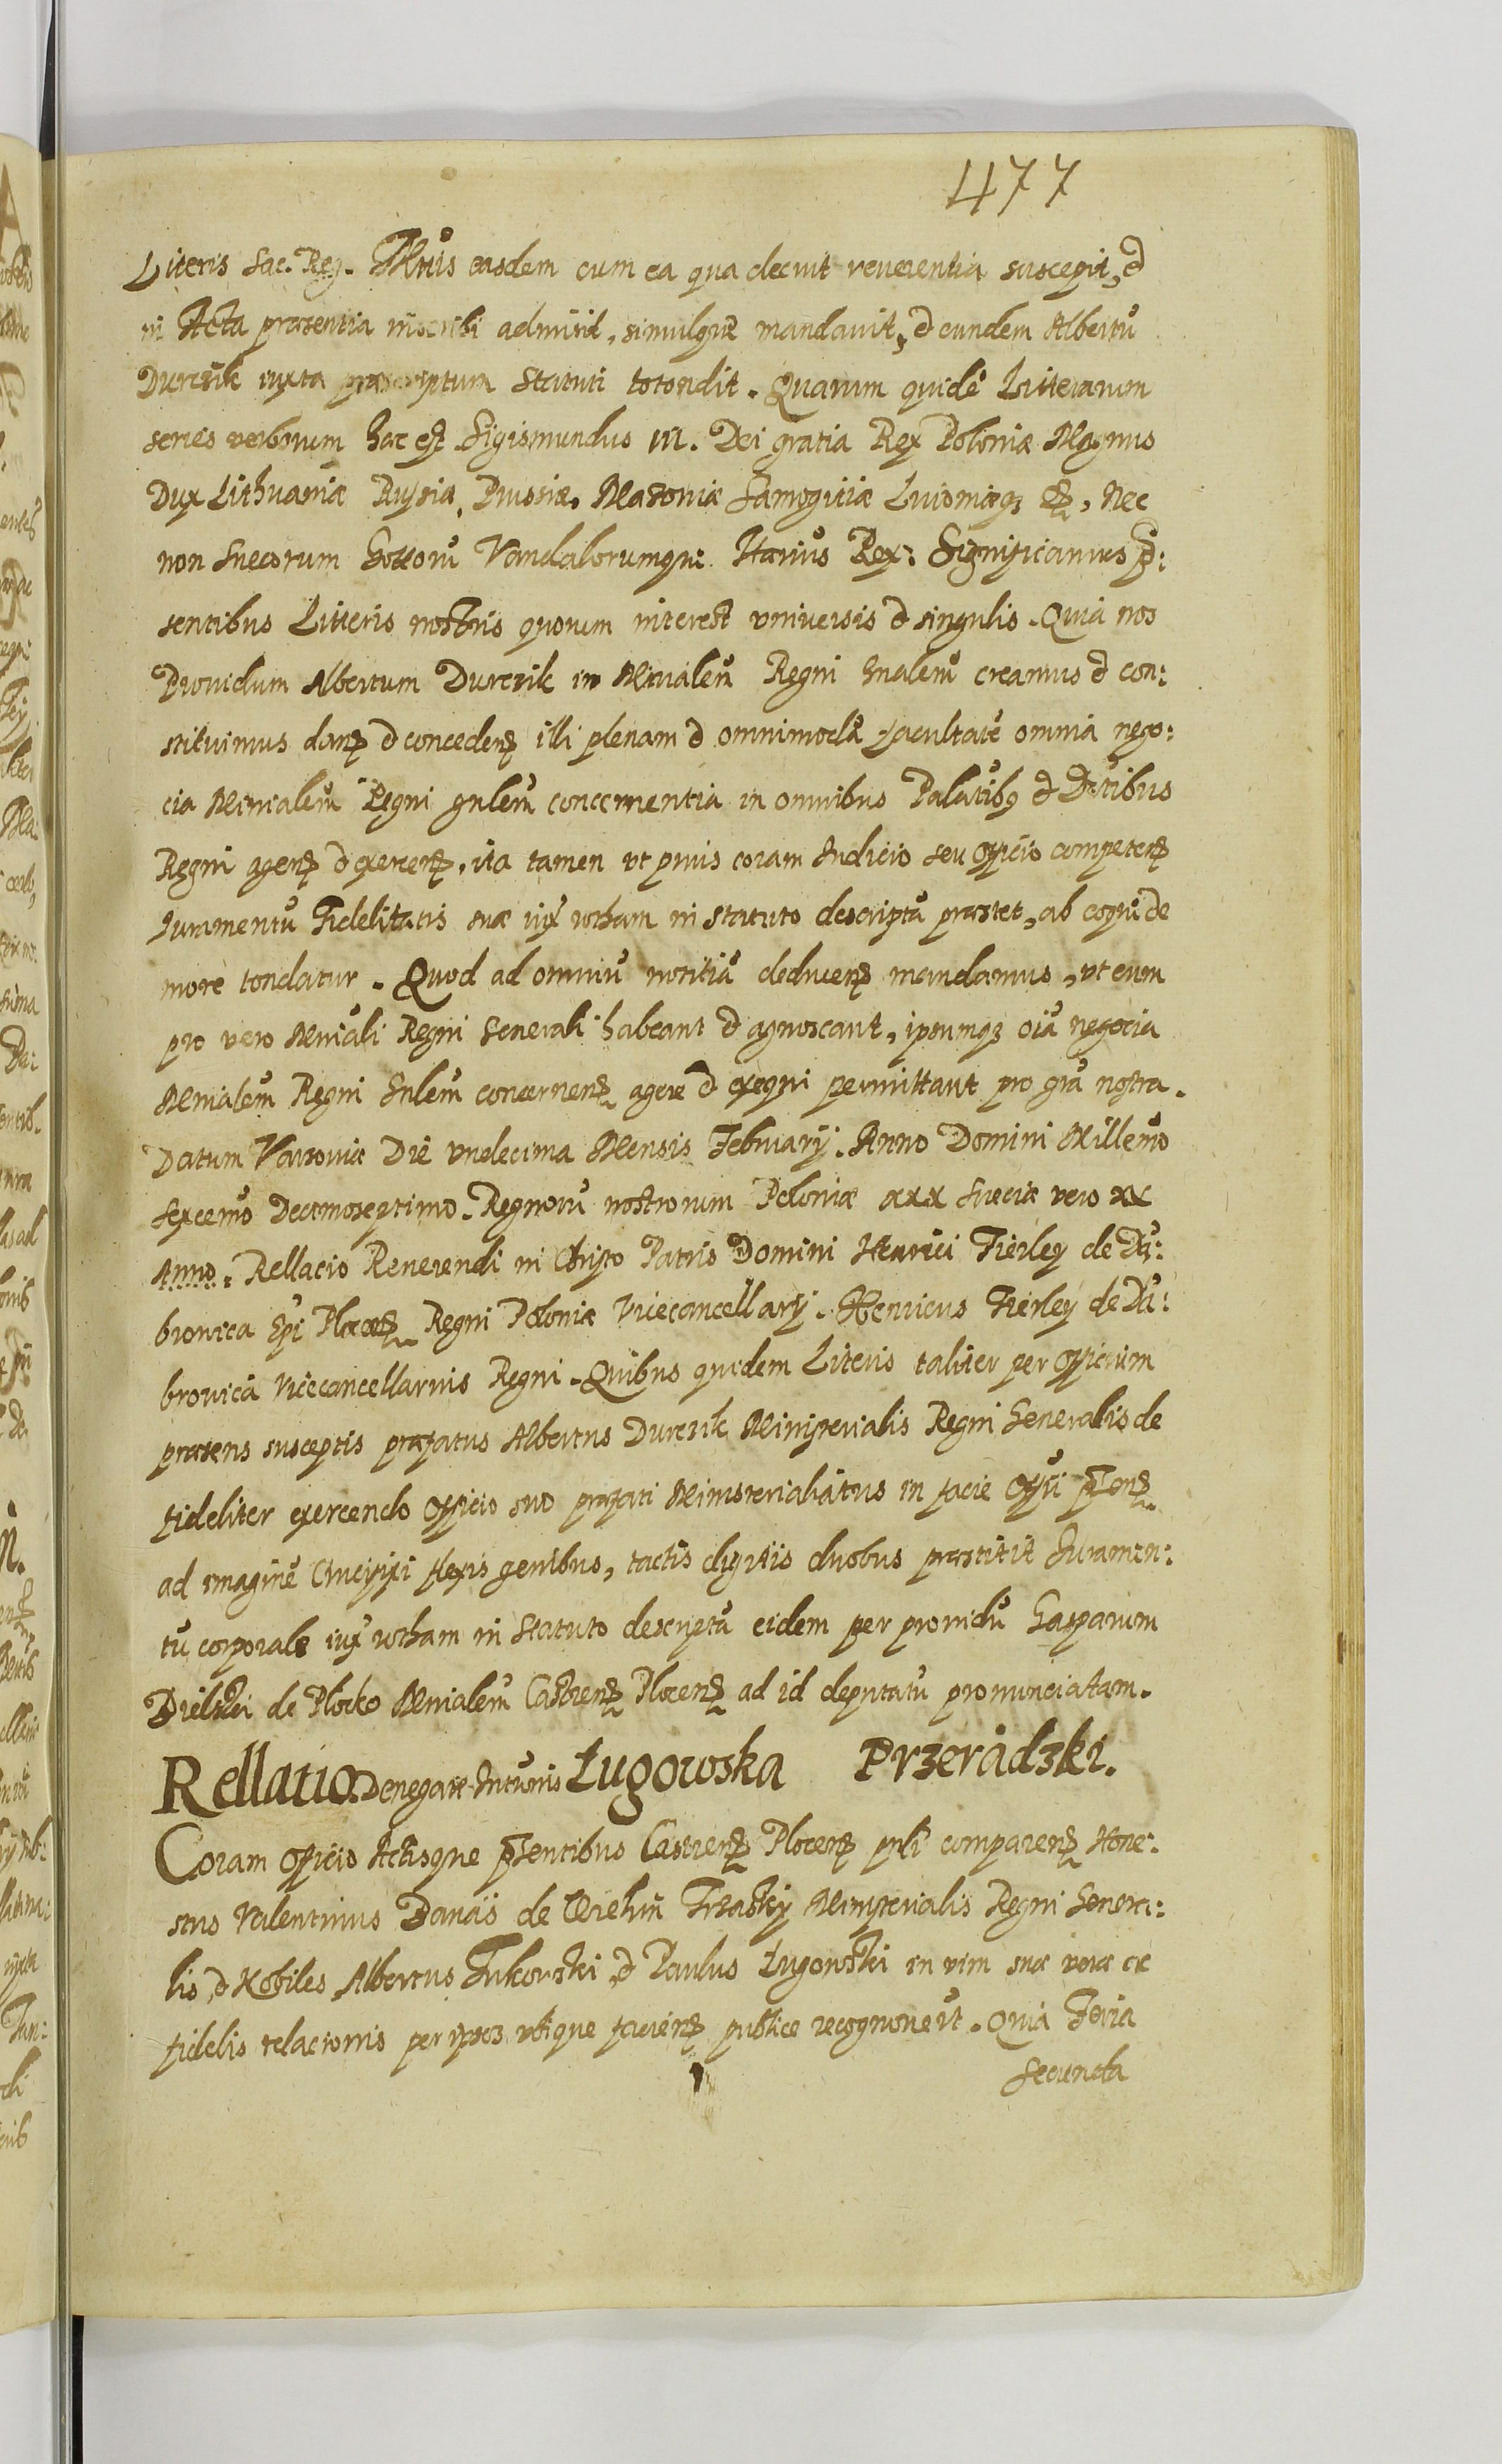 477
Literis Sac. Reg. Mtis easdem cum ea qua decuit reuerentia suscepit, et
in Acta præsentia inscribi admisit, simulque mandauit, et eundem Albertū
Durczik iuxta præscriptum Statuti totondit. Quarum quidē Litterarum
series verborum hæc est Sigismundus III. Dei gratia Rex Poloniæ Magnus
Dux Lithuaniæ Russiæ, Prussiæ, Masoniæ Samogitiæ Liuoniæq3 Nec
non Suecorum Gottorū Vandalorumque Hærius Rex: Significamus p:
sentibus Literis nostris quorum interest vniuersis et singulis. Quia nos
Prouidum Albertum Durczik in Minalem Regni Gnalem creamus et con:
stituimus danẓ et concedenẓ illi plenam et omnimodā facultatē omnia nego:
cia Minialem Regni gnlem concernentia in omnibus Palatibq et Dtibus
Regni agenẓ et exercenẓ, ita tamen vt prius coram Iudicio seu officio competenẓ
Iuramentū Fidelitatis suæ iux rotham in Statuto descriptā præstet, ab eoque de
more tondatur. Quod ad omniū notitiā deducenẓ mandamus, vt eum
pro vero Miniali Regni Generali habeant et agnoscant, ipsumq3 oia negocia
Minialem Regni Gnlem concernenẓ agere et exequi permittant pro gra nostra.
Datum Varsouiæ Die vndecima Mensis Februarij. Anno Domini Millemo
Sexcemo Decimoseptimo. Regnorū nostrorum Poloniæ xxx Sueciæ vero xx
Anno. Rellacio Reuerendi in Christo Patris Domini Henrici Fierley de Dā:
browica Epi Plocenẓ Regni Poloniæ Vicecancellarij. Henricus Fierley de Dā:
browica Vicecancellarius Regni. Quibus quidem Literis taliter per officium
præsens susceptis præfatus Albertus Durczik Ministerialis Regni Generalis de
fideliter exercendo officio suo præfati Ministerialiatus in facie offii psenẓ
ad imaginē Crucifixi flexis genibus, tactis digitis duobus præstitit Iuramen:
tū corporale iux rotham in Statuto descriptā eidem per prouidū Gasparum
Bielski de Plocko Minialem Castrenẓ Plocenẓ ad id deputatū pronunciatam.
Rellatio Denegatæ Intronis Ługowska Przeradzki.
Coram officio Actisque psentibus Castrenẓ Plocenẓ pnlr comparenẓ Hone:
stus Valentinus Banas de Trzaski Ministerialis Regni Genera:
lis, et Nobiles Albertus Sukowski et Paulus Ługowski in vim suæ veræ ac
fidelis relactionis per ipsos vtique facienẓ publice recognouert. Quia Feria
Secunda